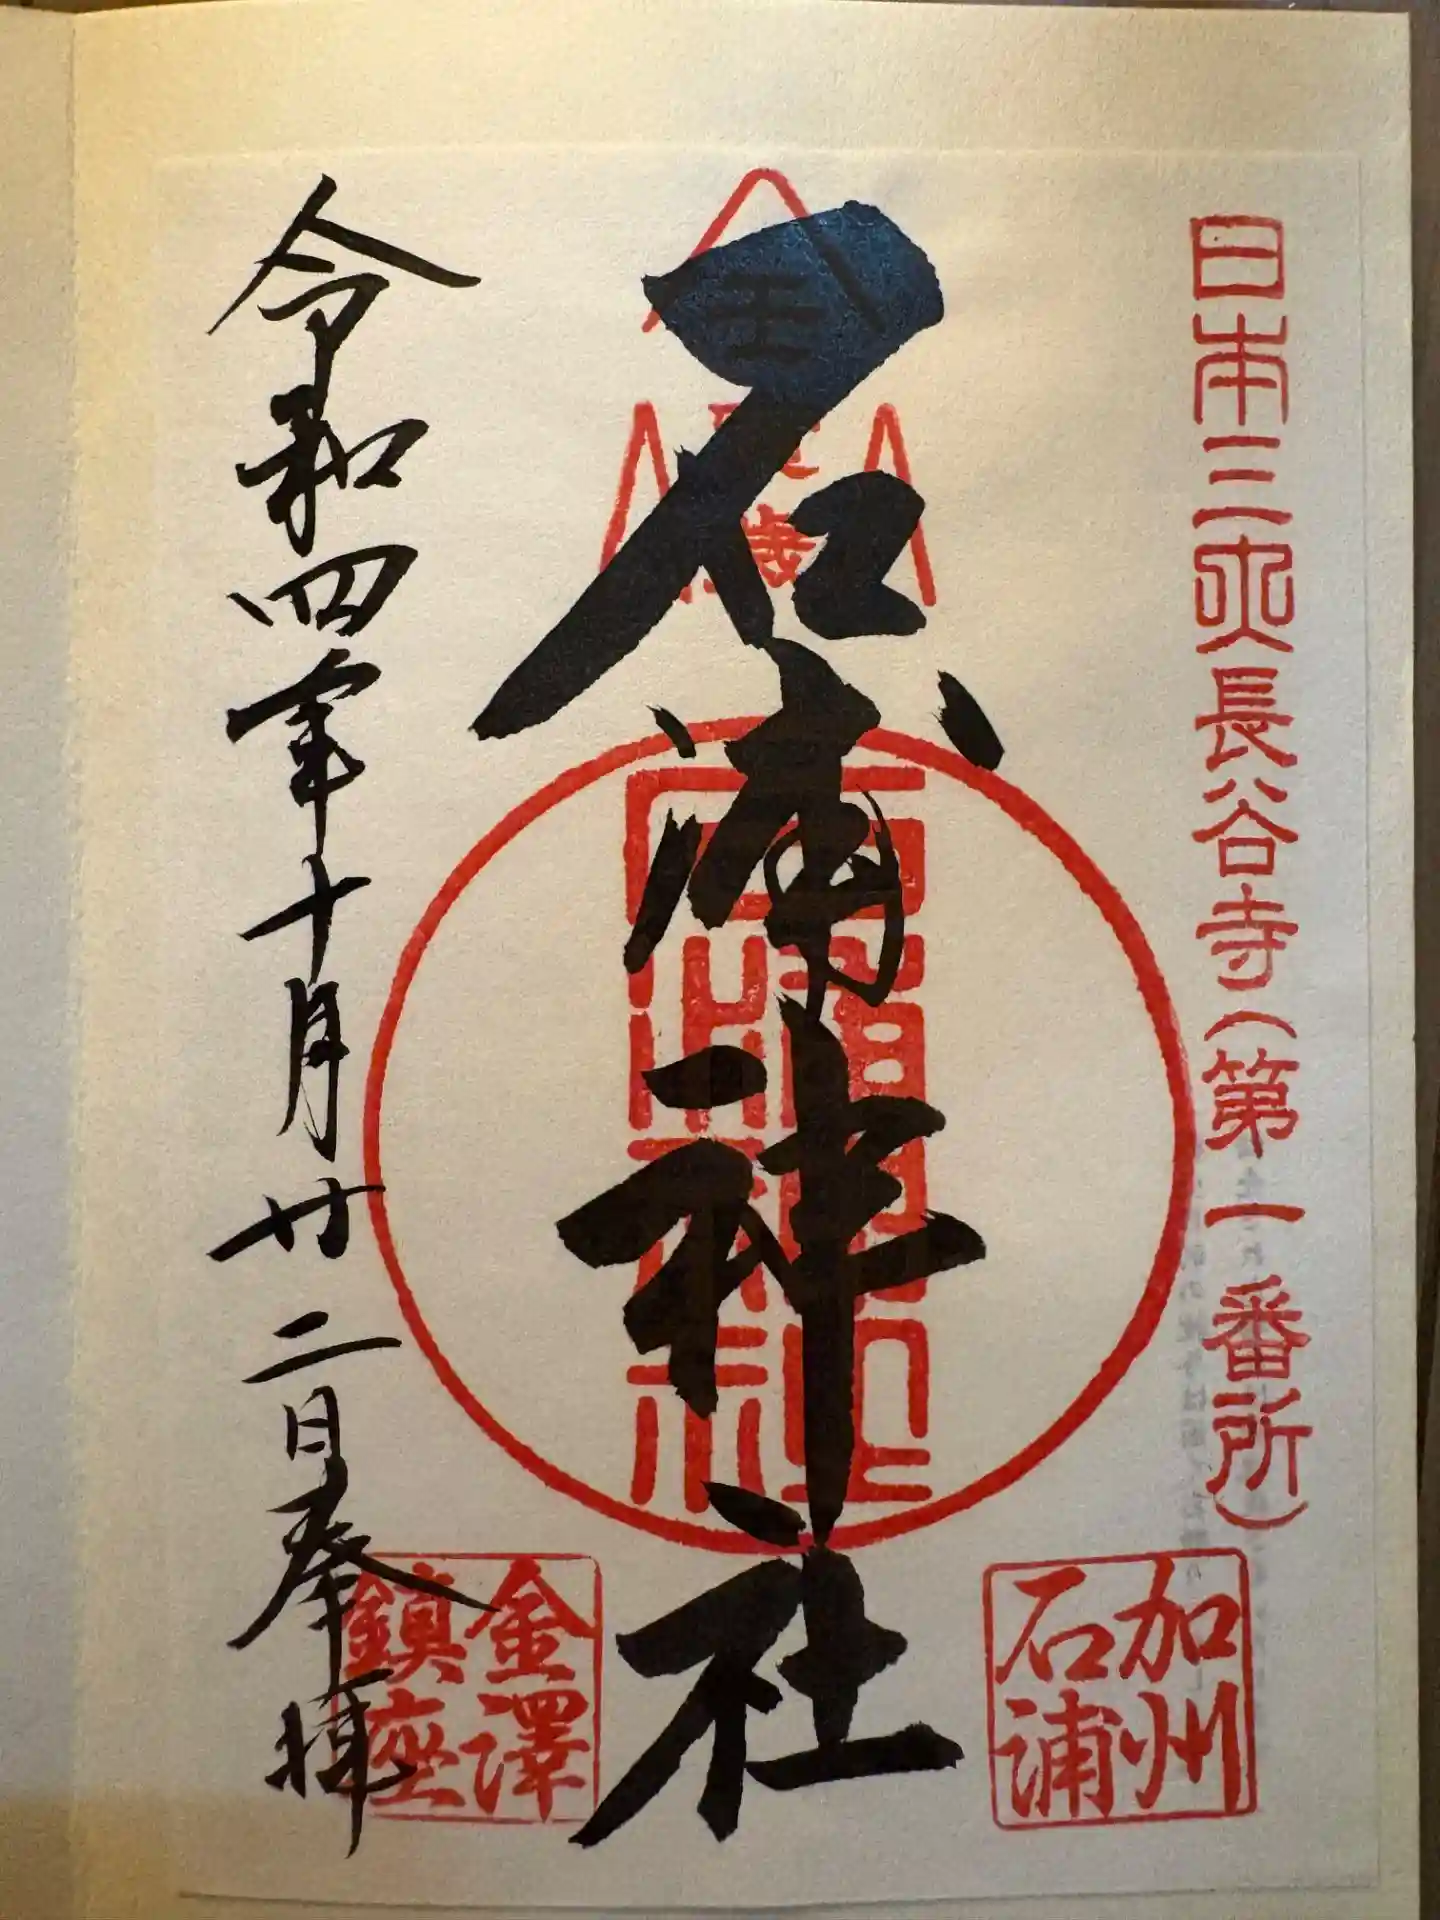 日本三大長谷寺（第一番所）
加州
石浦
石浦神社
石浦神社
令和四年十月廿二日奉拝
金澤
鎮座